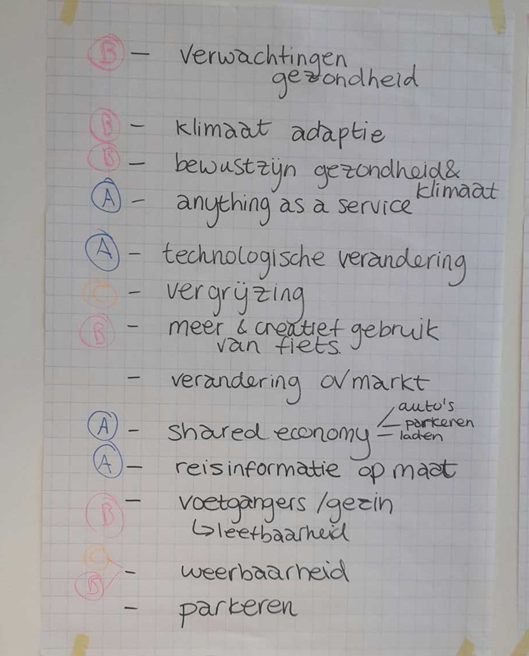 B - verwachtingen
gezondheid
B - klimaat adaptie
B - bewustzijn gezondheid&
klimaat
A - anything as a service
A - technologische verandering
C - vergrijzing
B - meer & creatief gebruik
van fiets.
- verandering ov markt
auto's
A - shared economy - parkeren
- laden
A - reisinformatie op maat
B - voetgangers / gezin
↳ leefbaarheid
C
B - weerbaarheid
- parkeren